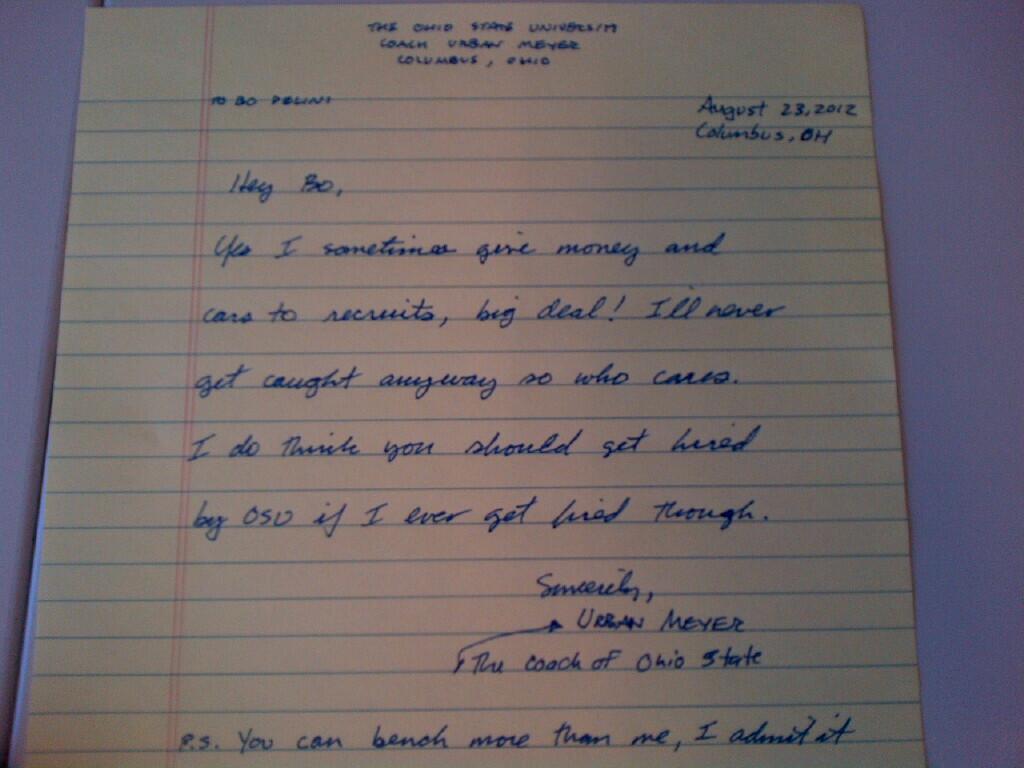 THE OHIO STATE UNIVERSITY
COACH URBAN MEYER
COLUMBUS, OHIO
TO BO PELINI
August 23, 2012
Columbus, OH
Hey Bo,
Yes I sometimes give money and
cars to recruits, big deal! I'll never
get caught anyway so who cares.
I do think you should get hired
by OSU if I ever get fired though.
Sincerely,
URBAN MEYER
The coach of Ohio State
P.S. You can bench more than me, I admit it